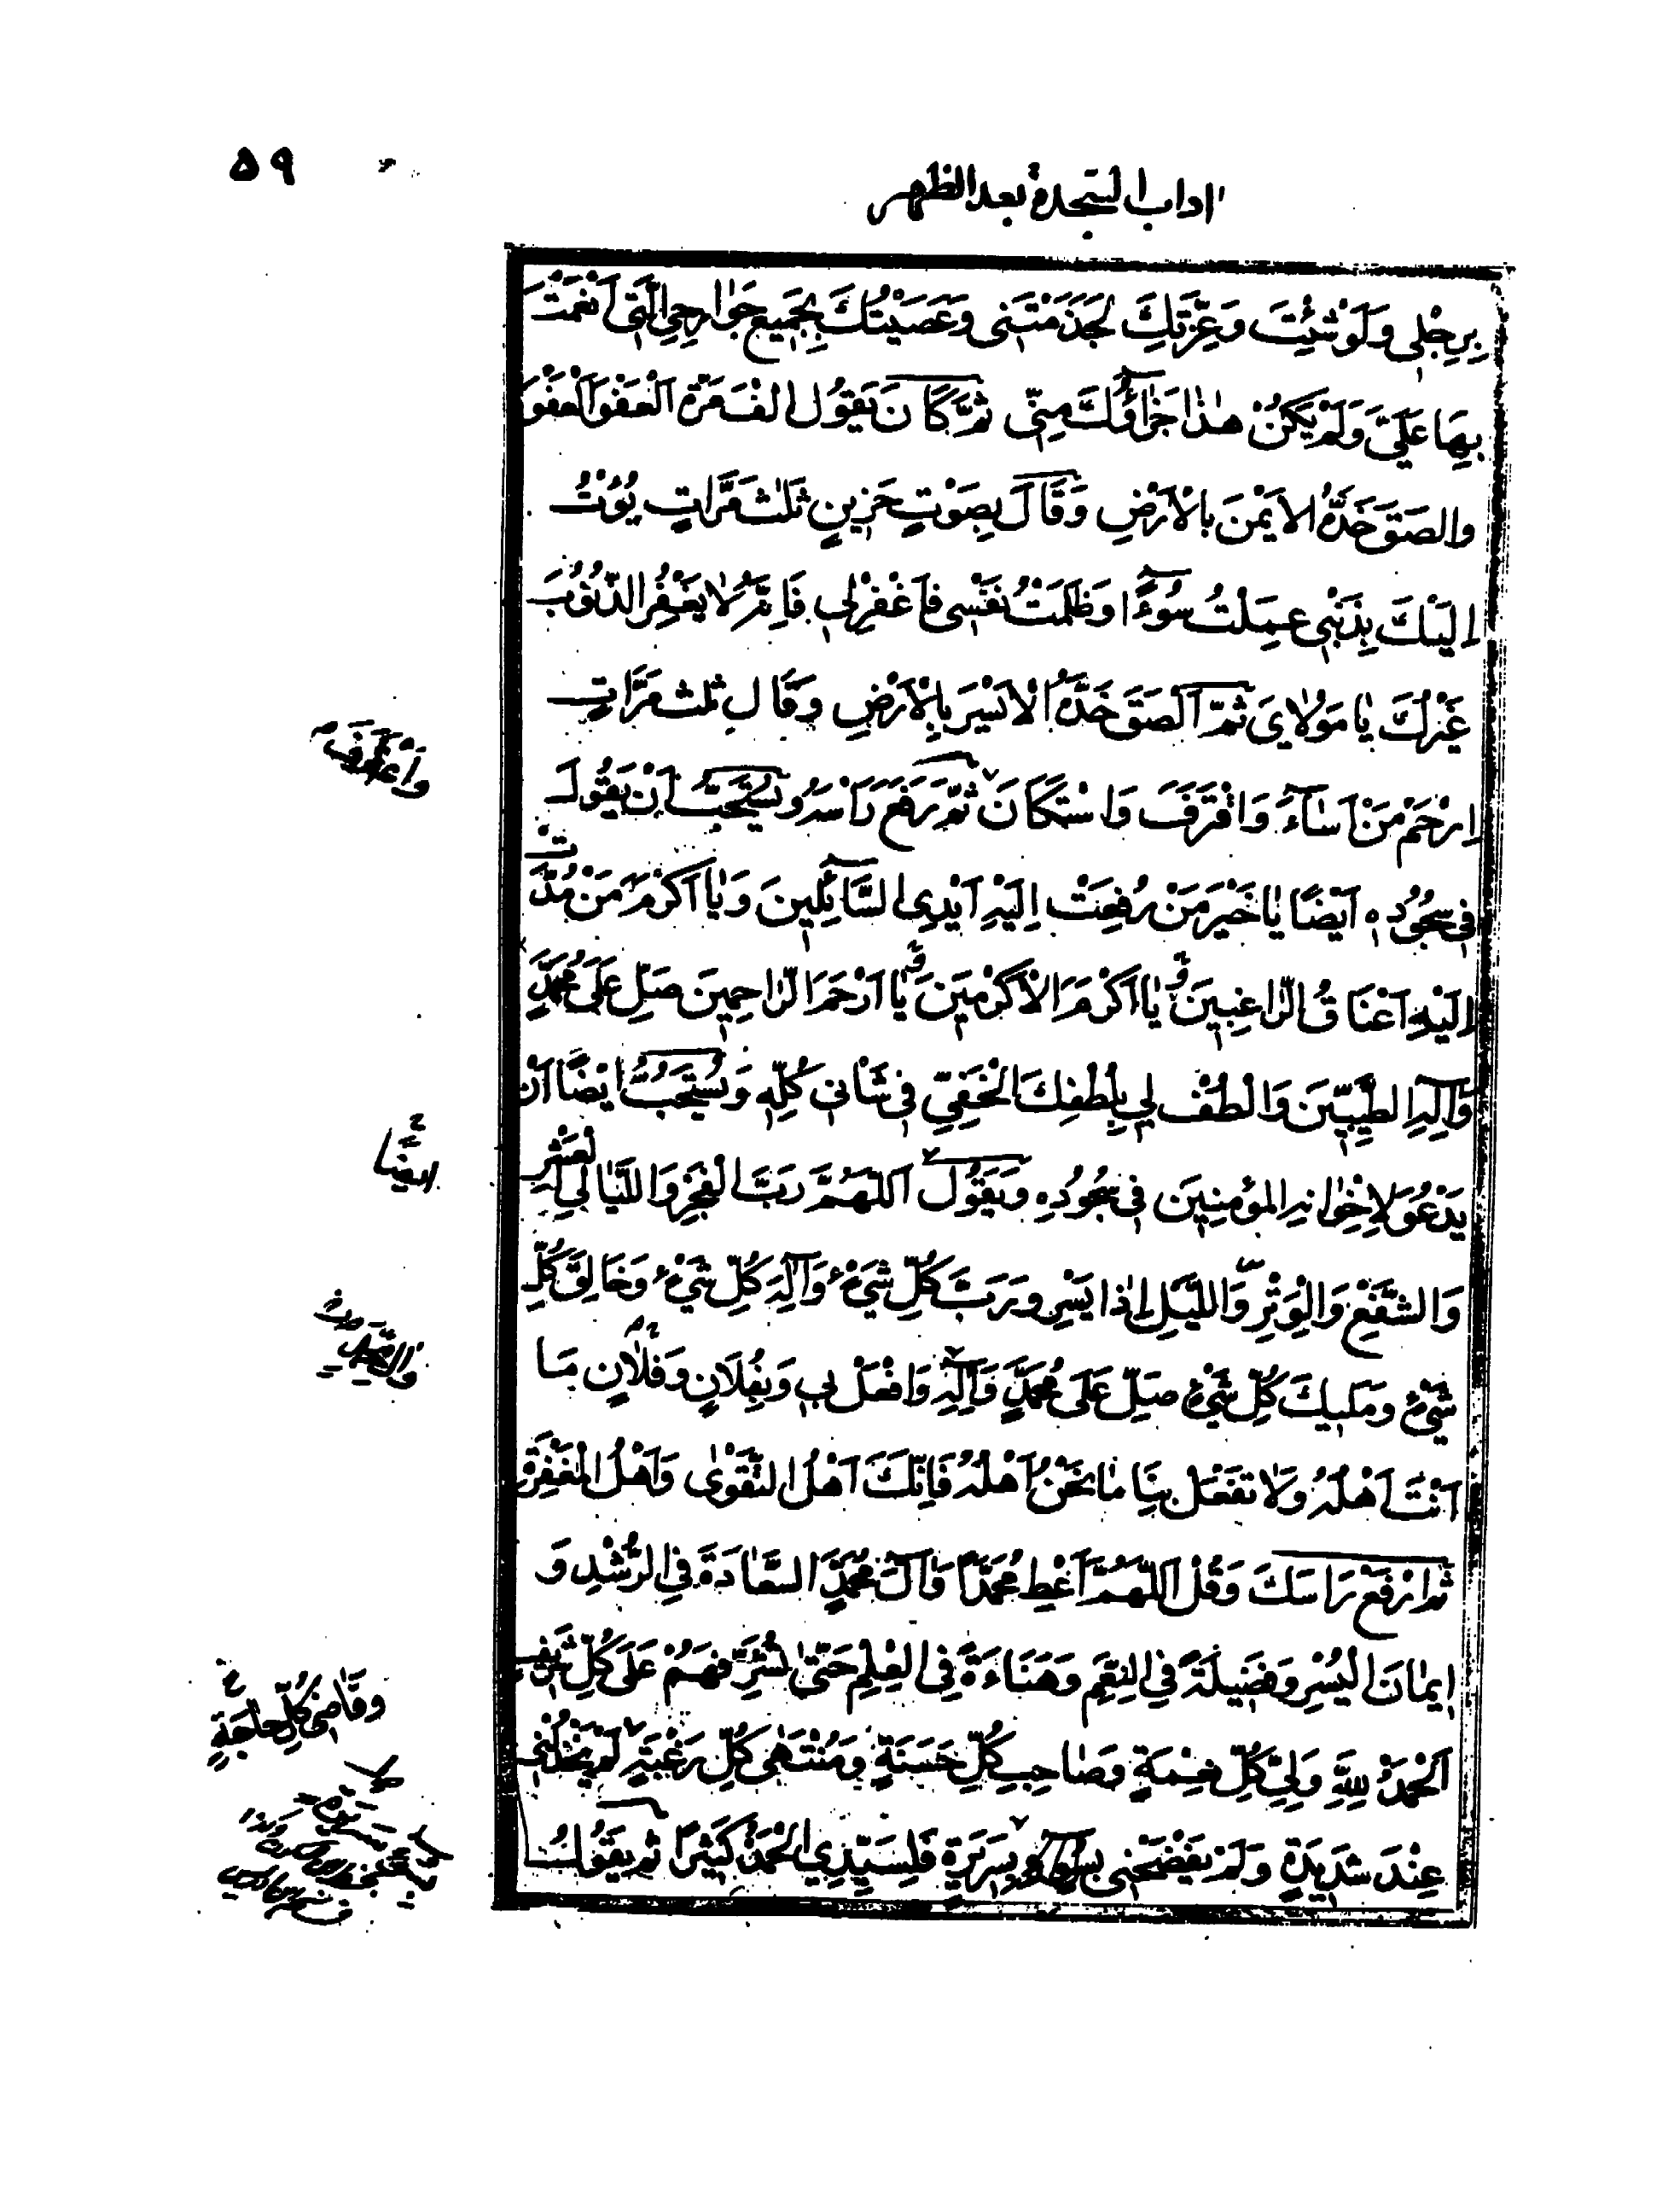 ۵۹
اداب السجدة بعد الظهر
بِرِجْلِى وَلَوْ شِئْتَ وَعِزَّتِكَ لَجَذَمْتَنِى وَعَصَيْتُكَ بِجَمِيعِ جَوٰارِحِى الَّتِى اَنْعَمْتَ
بِهَا عَلَىَّ وَلَمْ يَكُنْ هٰذٰا جَزٰاؤُكَ مِنِّى ثُمَّ كَانَ يَقُولُ الف مَرّة اَلْعَفْوَ اَلْعَفْوَ
والصَقَ خَدَّهُ الاَيْمَنَ بِالْاَرْضِ وَقَالَ بِصَوْتٍ حَزِينٍ ثَلٰثَ مَرَّاتٍ بُؤْتُ
اِلَيْكَ بِذَنْبِى عَمِلْتُ سُوءًا وَظَلَمْتُ نَفْسِى فَاغْفِرْلِى فَاِنَّهُ لٰا يَغْفِرُ الذُّنُوبَ
غَيْرُكَ يٰا مَوْلاٰىَ ثُمَّ اَلْصَقَ خَدَّهُ الْاَيْسَرَ بِالْاَرْضِ وَقَالَ ثلث مَرَّاتٍ
اِرْحَمْ مَنْ اَسٰاءَ وَاقْتَرَفَ وَاسْتَكَانَ ثُمَّ رَفَعَ رَاْسَهُ وَيُسْتَحَبُّ اَنْ يَقُولَ
وَاعْتَرَفَ
فِى سُجُودِهِ اَيْضًا يٰا خَيْرَ مَنْ رُفِعَتْ اِلَيْهِ اَيْدِى السَّائِلِينَ وَيٰا اَكْرَمَ مَنْ مُدَّتْ
اِلَيْهِ اَعْنَاقُ الرّٰاغِبِينَ وَ يٰا اَكْرَمَ الْاَكْرَمِينَ وَ يٰا اَرْحَمَ الرّٰاحِمِينَ صَلِّ عَلَى مُحَمَّدٍ
وَآلِهِ الطَّيِّبِينَ وَالْطُفْ لِى بِلُطْفِكَ الْخَفِيِّ فِى شَانِى كُلِّهِ وَيُسْتَحَبُّ اَيْضًا اَنْ
يَدْعُوَ لِاِخْوٰانِهِ المؤمِنِينَ فِى سُجُودِهِ وَيَقُولَ اَللّٰهُمَّ رَبَّ الْفَجْرِ وَاللَّيٰالِى الْعَشْرِ
اَيضًا
وَالشَّفْعِ وَالْوَتْرِ وَاللَّيْلِ اِذٰا يَسْرِ وَرَبَّ كُلِّ شَيْءٍ وَاِلٰهَ كُلِّ شَيْءٍ وَخَالِقَ كُلِّ
شَيْءٍ وَمَلِيكَ كُلِّ شَيْءٍ صَلِّ عَلَى مُحَمَّدٍ وَآلِهِ وَافْعَلْ بِى وَبِفُلَانٍ وَفُلَانٍ مَا
اَنْتَ اَهْلُهُ وَلَا تَفْعَلْ بِنَا مَا نَحْنُ اَهْلُهُ فَاِنَّكَ اَهْلُ التَّقْوٰى وَاَهْلُ الْمَغْفِرَةِ
ثُمَّ ارْفَعْ رَاسَكَ وَقُلْ اَللّٰهُمَّ اَعْطِ مُحَمَّدًا وَآلَ مُحَمَّدٍ السَّعٰادَةَ فِى الرُّشْدِ وَ
اِيمٰانَ الْيُسْرِ وَفَضِيلَةً فِى النِّعَمِ وَهَنَاءَةً فِى الْعِلْمِ حَتّٰى تُشَرِّفَهُمْ عَلَى كُلِّ شَرِيفٍ
اَلْحَمْدُ لِلّٰهِ وَلِىِّ كُلِّ نِعْمَةٍ وَصٰاحِبِ كُلِّ حَسَنَةٍ وَمُنْتَهٰى كُلِّ رَغْبَةٍ لَمْ يَخْذُلْنِى
وَقٰاضِى كُلِّ حٰاجَةٍ
عِنْدَ شَدِيدَةٍ وَلَمْ يَفْضَحْنِى بِسَرِيرَةٍ فَلِسَيِّدِى الْحَمْدُ كَثِيرًا ثُمَّ يَقُولُ